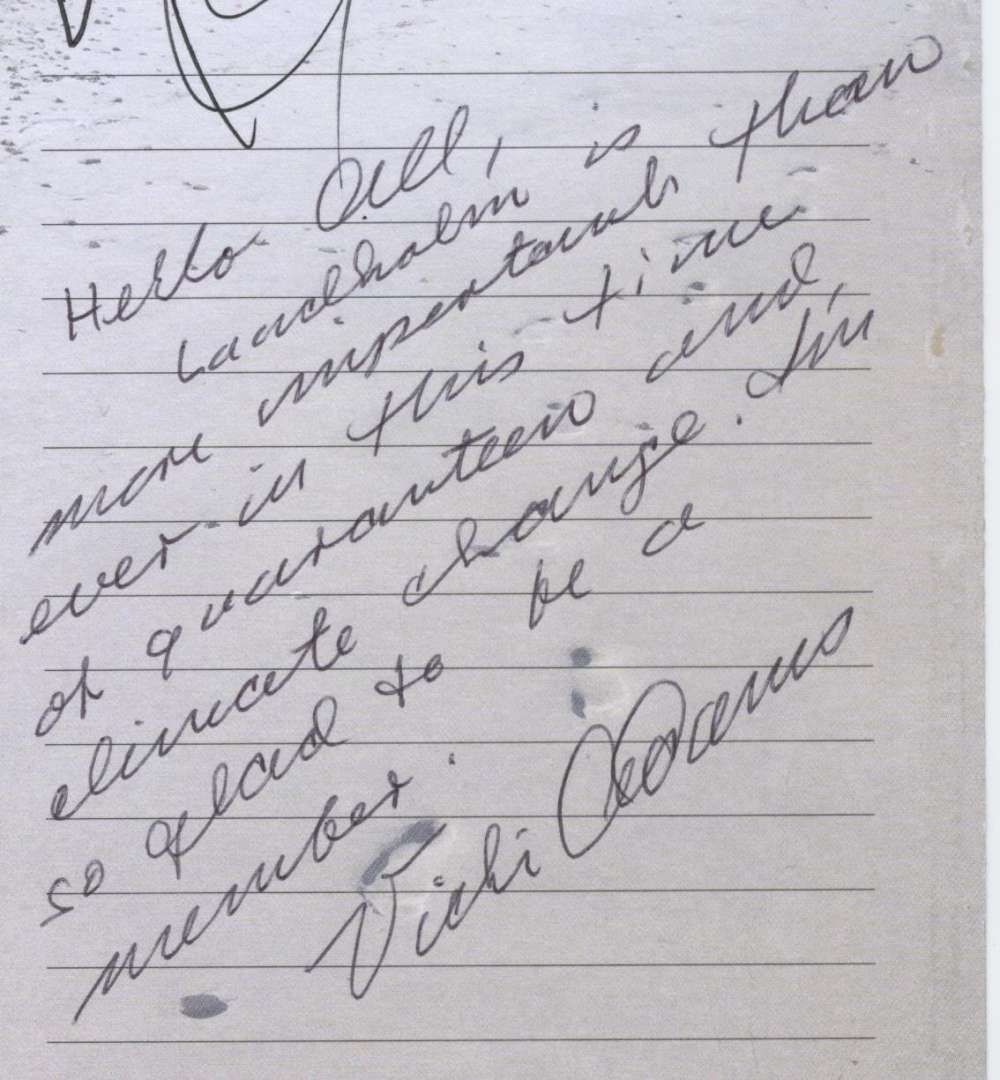 Hello All,
Laudholm is
more important than
ever in this time
of quaranteen and
climate change. I'm
so glad to be a
member.
Vicki Adams